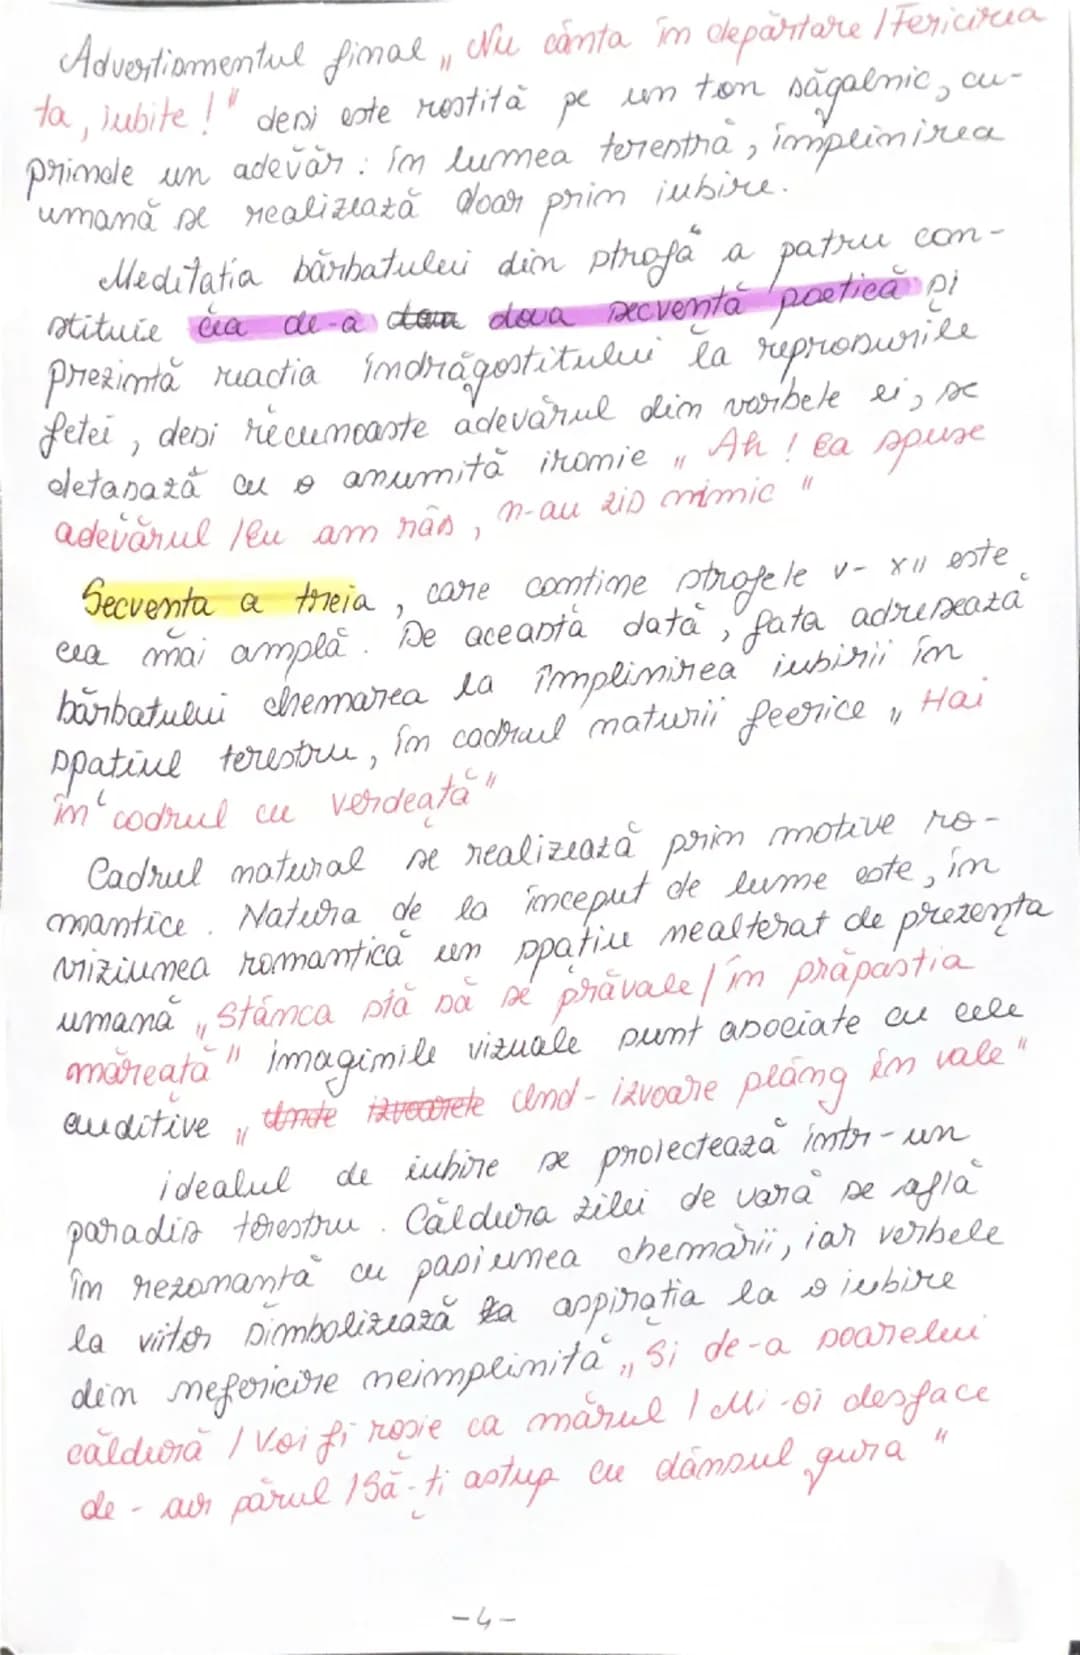 Advertismentul final „Nu cânta în depărtare / Fericirea
ta, iubite!" deși este rostită pe un ton șăgalnic, cu-
prinde un adevăr: în lumea terestră, împlinirea
umană se realizează doar prin iubire.
Meditația bărbatului din strofa a patru con-
stituie cea de-a doua secvență poetică și
prezintă reacția îndrăgostitului la reproșurile
fetei, deși recunoaște adevărul din vorbele ei, se
detașază cu o anumită ironie „Ah! Ea spuse
adevărul / Eu am râs, n-au zis nimic"
Secvența a treia, care conține strofele V- XII este
cea mai amplă. De această dată, fata adresează
bărbatului chemarea la împlinirea iubirii în
spațiul terestru, în cadrul naturii feerice „Hai
în codrul cu verdeață"
Cadrul natural se realizează prin motive ro-
mantice. Natura de la început de lume este, în
viziunea romantică un spațiu nealterat de prezența
umană „Stânca stă să se prăvale / în prăpastia
măreață" imaginile vizuale sunt asociate cu cele
auditive „Unde izvoarele Und-izvoare plâng în vale"
idealul de iubire se proiectează într-un
paradis terestru. Căldura zilei de vară se află
în rezonanță cu pasiunea chemării, iar verbele
la viitor simbolizează aspirația la o iubire
din nefericire neîmplinită „Și de-a soarelui
căldură / Voi fi roșie ca mărul / Mi-oi desface
de-aur părul / Să-ți astup cu dânsul gura"
-4-